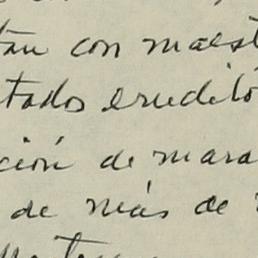 tan con maest
tados erudito
ción de mara
de más de